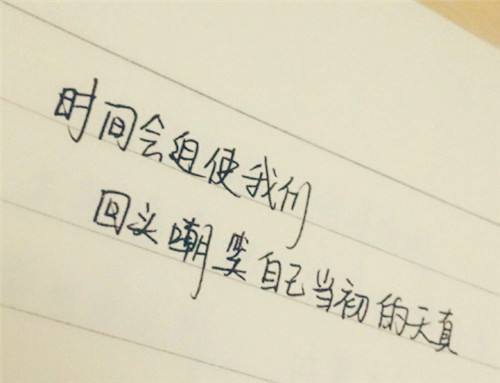 时间会迫使我们
回头嘲笑自己当初的天真